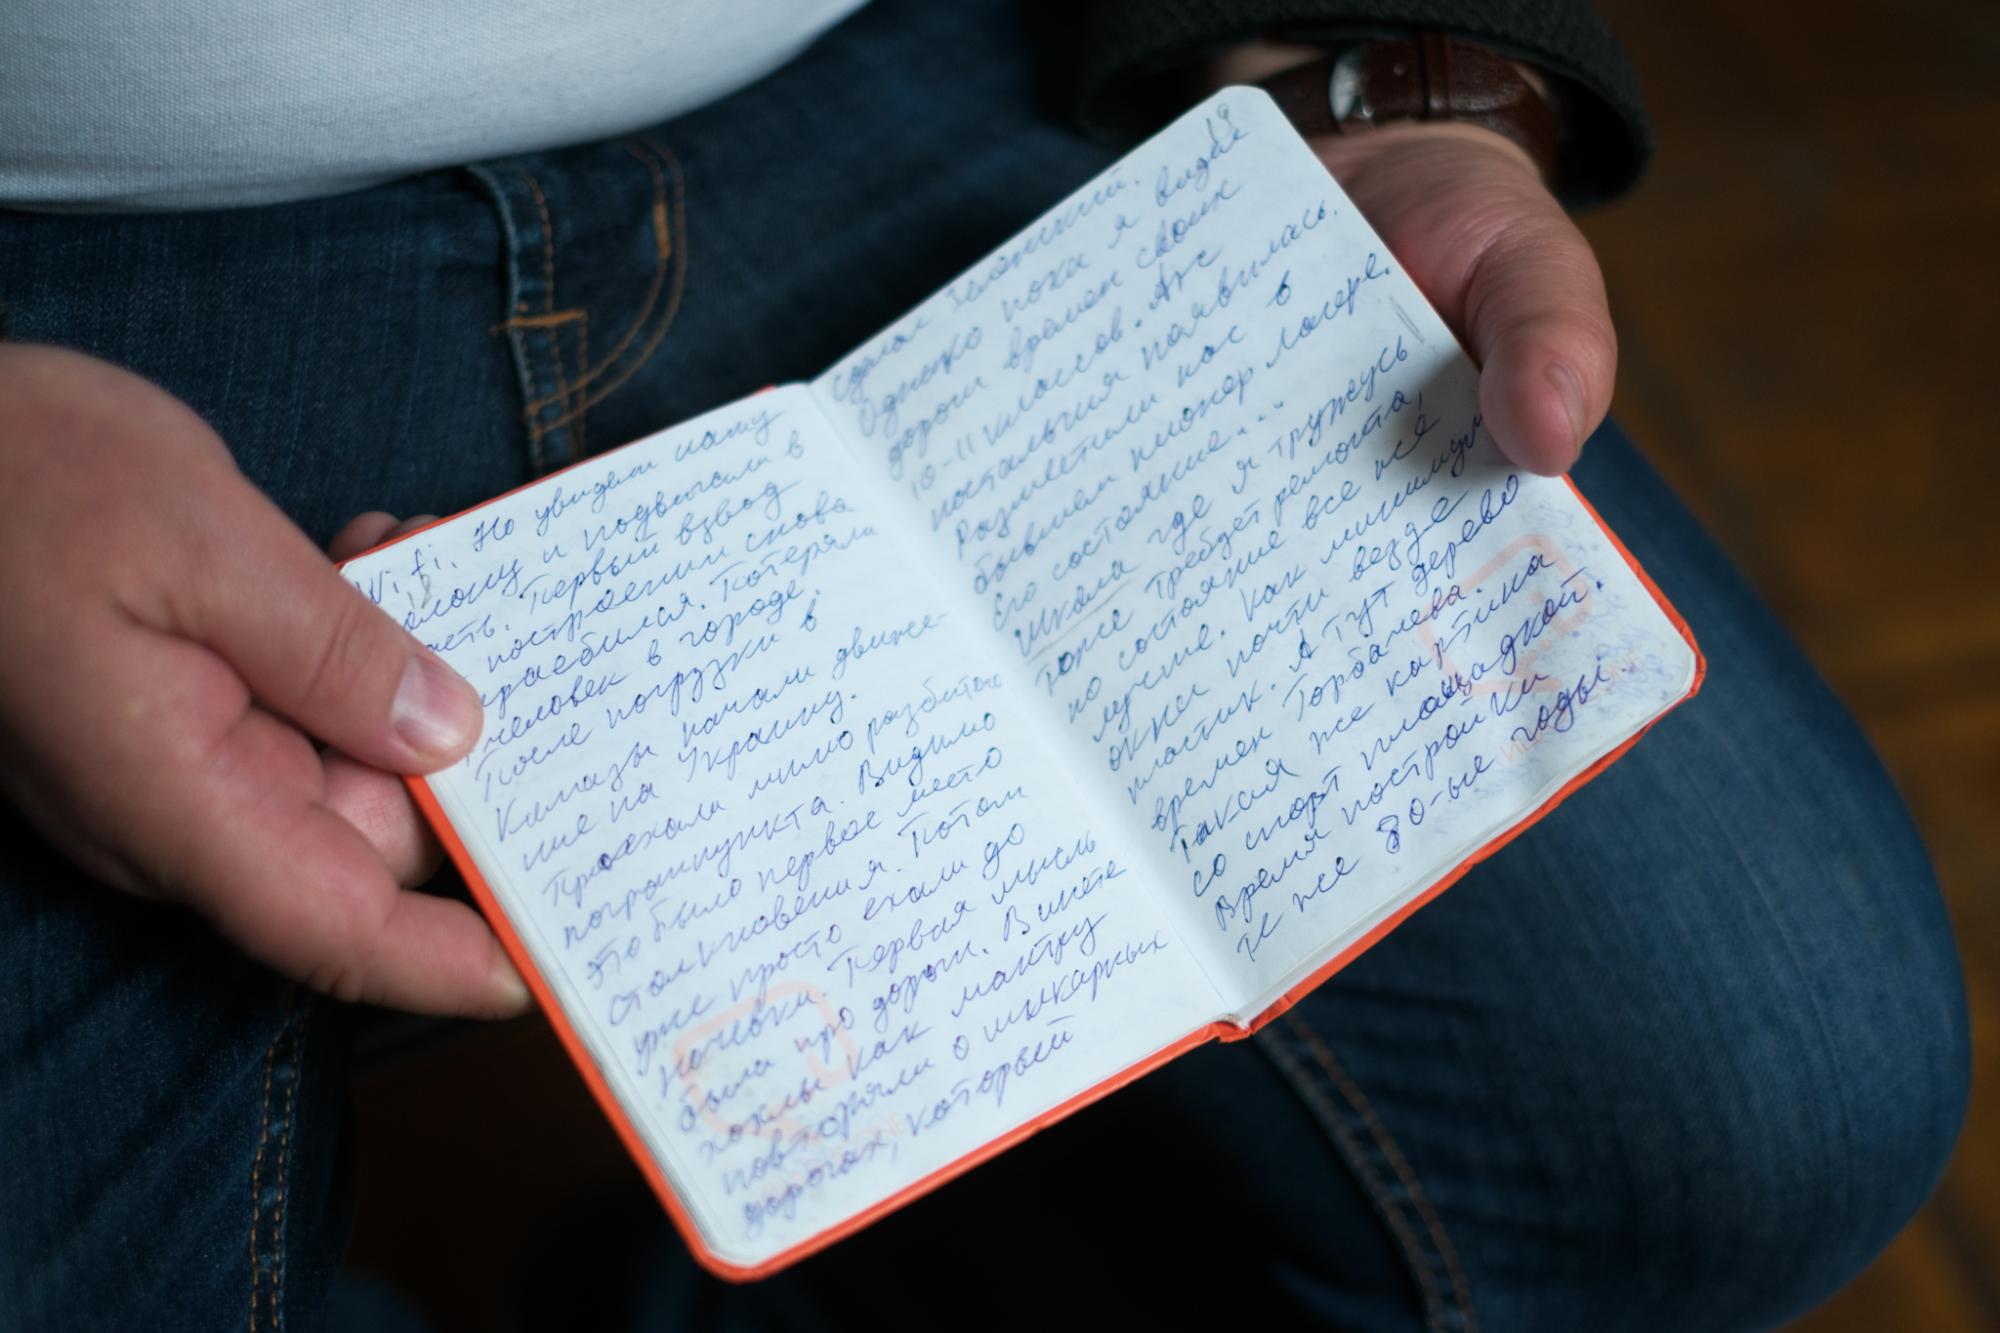 18
Wi fi. Но увидели нашу
колонну и подвысили в
Первый взвод
построении снова
Потеряли
человек в городе.
После погрузки в
Камазы начали движе-
ние на Украину.
Проехали мимо разбитого
погранпункта. Видимо
это было первое место
столкновения. Потом
уже просто ехали до
ночевки. Первая мысль
была про дороги. В инете
хохлы как мантру
повторяли о шикарных
дорогах, который
19
сделал Зеленский.
Однако пока я видел
дороги времен своих
10-11 классов. Аж
ностальгия появилась.
Разместили нас в
бывшем пионер лагере.
Его состояние...
Школа где я тружусь
тоже требует ремонта,
но состояние все же
лучше. Как минимум
окна почти везде
пластик. А тут дерево
времен Горбачева.
Такая же картина
со спорт площадкой.
Время постройки
те же 80-ые годы.